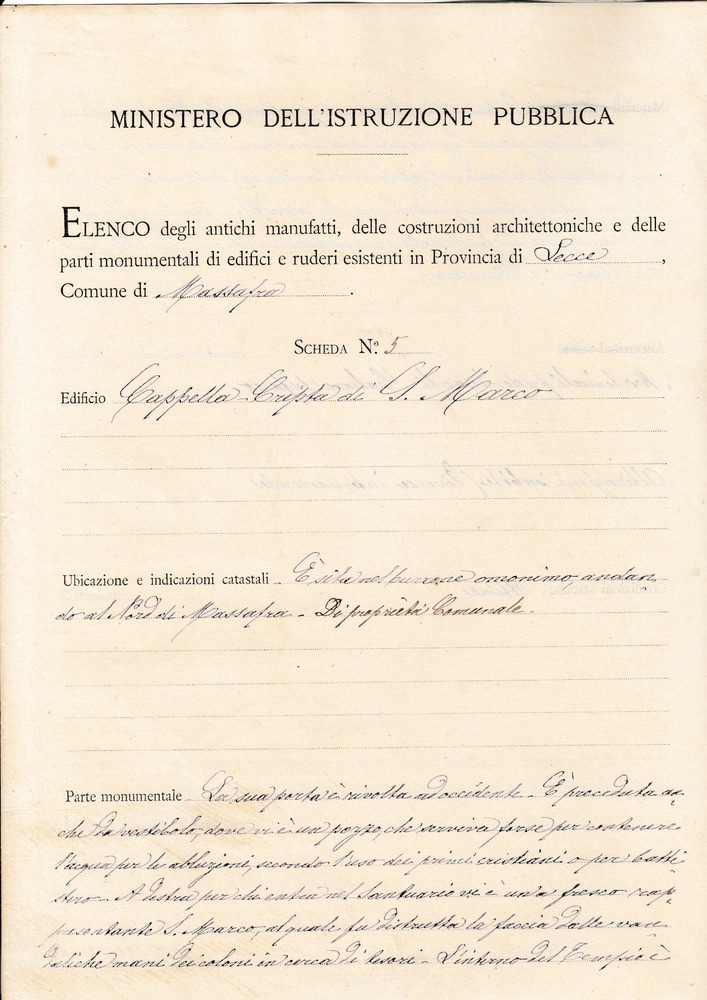 MINISTERO DELL'ISTRUZIONE PUBBLICA
ELENCO degli antichi manufatti, delle costruzioni architettoniche e delle
parti monumentali di edifici e ruderi esistenti in Provincia di Lecce,
Comune di Massafra.
SCHEDA N.º 5
Edificio Cappella-Cripta di S. Marco
Ubicazione e indicazioni catastali - È sita nel burrone omonimo, andan
do al Nord di Massafra - Di proprietà Comunale.
Parte monumentale - La sua porta è rivolta ad occidente - È preceduta an-
che da vestibolo, dove vi è un pozzo, che serviva forse per contenere
l'acqua per le abluzioni, secondo l'uso dei primi cristiani o per batti
stero - A destra per chi entra nel Santuario vi è un a fresco rap-
presentante S. Marco, al quale fu distrutta la faccia dalle van
daliche mani dei coloni in cerca di tesori - L'interno del Tempio è